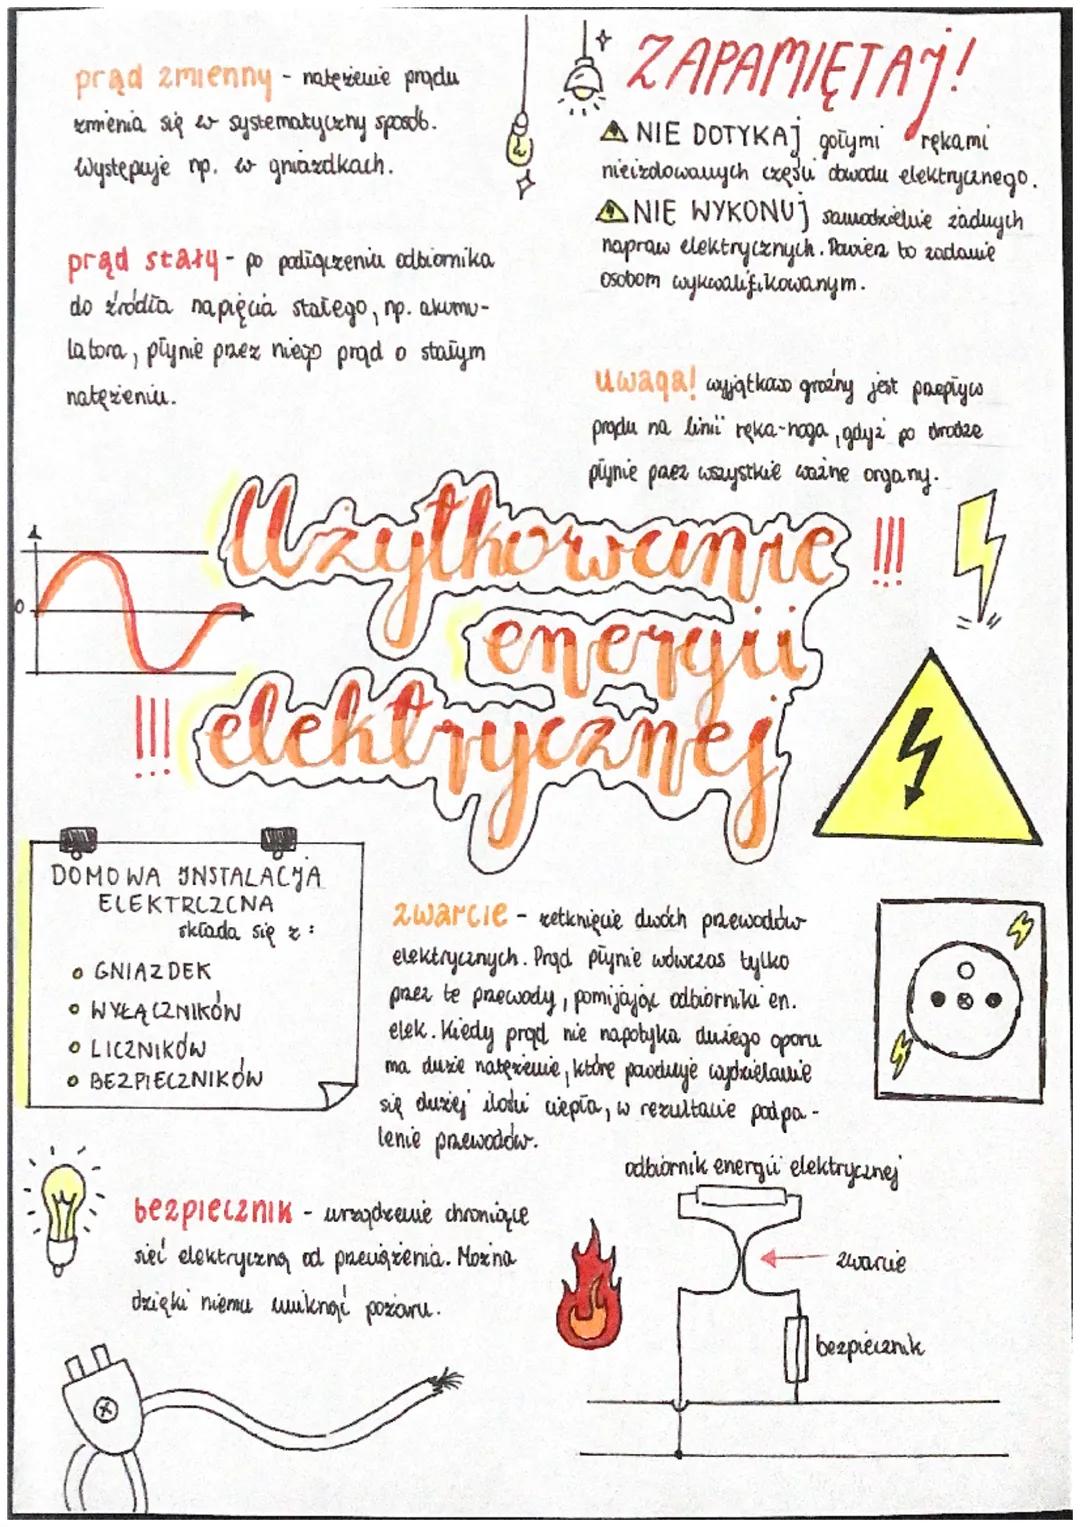 prąd zmienny - natężenie prądu
zmienia się w systematyczny sposób.
Występuje np. w gniazdkach.
prąd stały - po podłączeniu odbiornika
do źródła napięcia stałego, np. akumu-
latora, płynie przez niego prąd o stałym
natężeniu.
ZAPAMIĘTAJ!
NIE DOTYKAJ gołymi rękami
nieizolowanych części obwodu elektrycznego.
NIE WYKONUJ samodzielnie żadnych
napraw elektrycznych. Powierz to zadanie
osobom wykwalifikowanym.
uwaga! wyjątkowo groźny jest przepływ
prądu na linii ręka-noga, gdyż po drodze
płynie przez wszystkie ważne organy.
0
Użytkowanie
energii
elektrycznej
!!!
!!!
DOMOWA INSTALACJA
ELEKTRCZCNA
składa się z:
GNIAZDEK
WYŁĄCZNIKÓW
LICZNIKÓW
BEZPIECZNIKÓW
zwarcie - zetknięcie dwóch przewodów
elektrycznych. Prąd płynie wówczas tylko
przez te przewody, pomijając odbiorniki en.
elek. Kiedy prąd nie napotyka dużego oporu
ma duże natężenie, które powoduje wydzielanie
się dużej ilości ciepła, w rezultacie podpa-
lenie przewodów.
bezpiecznik - urządzenie chroniące
sieć elektryczną od przeciążenia. Można
dzięki niemu uniknąć pożaru.
odbiornik energii elektrycznej
zwarcie
bezpiecznik